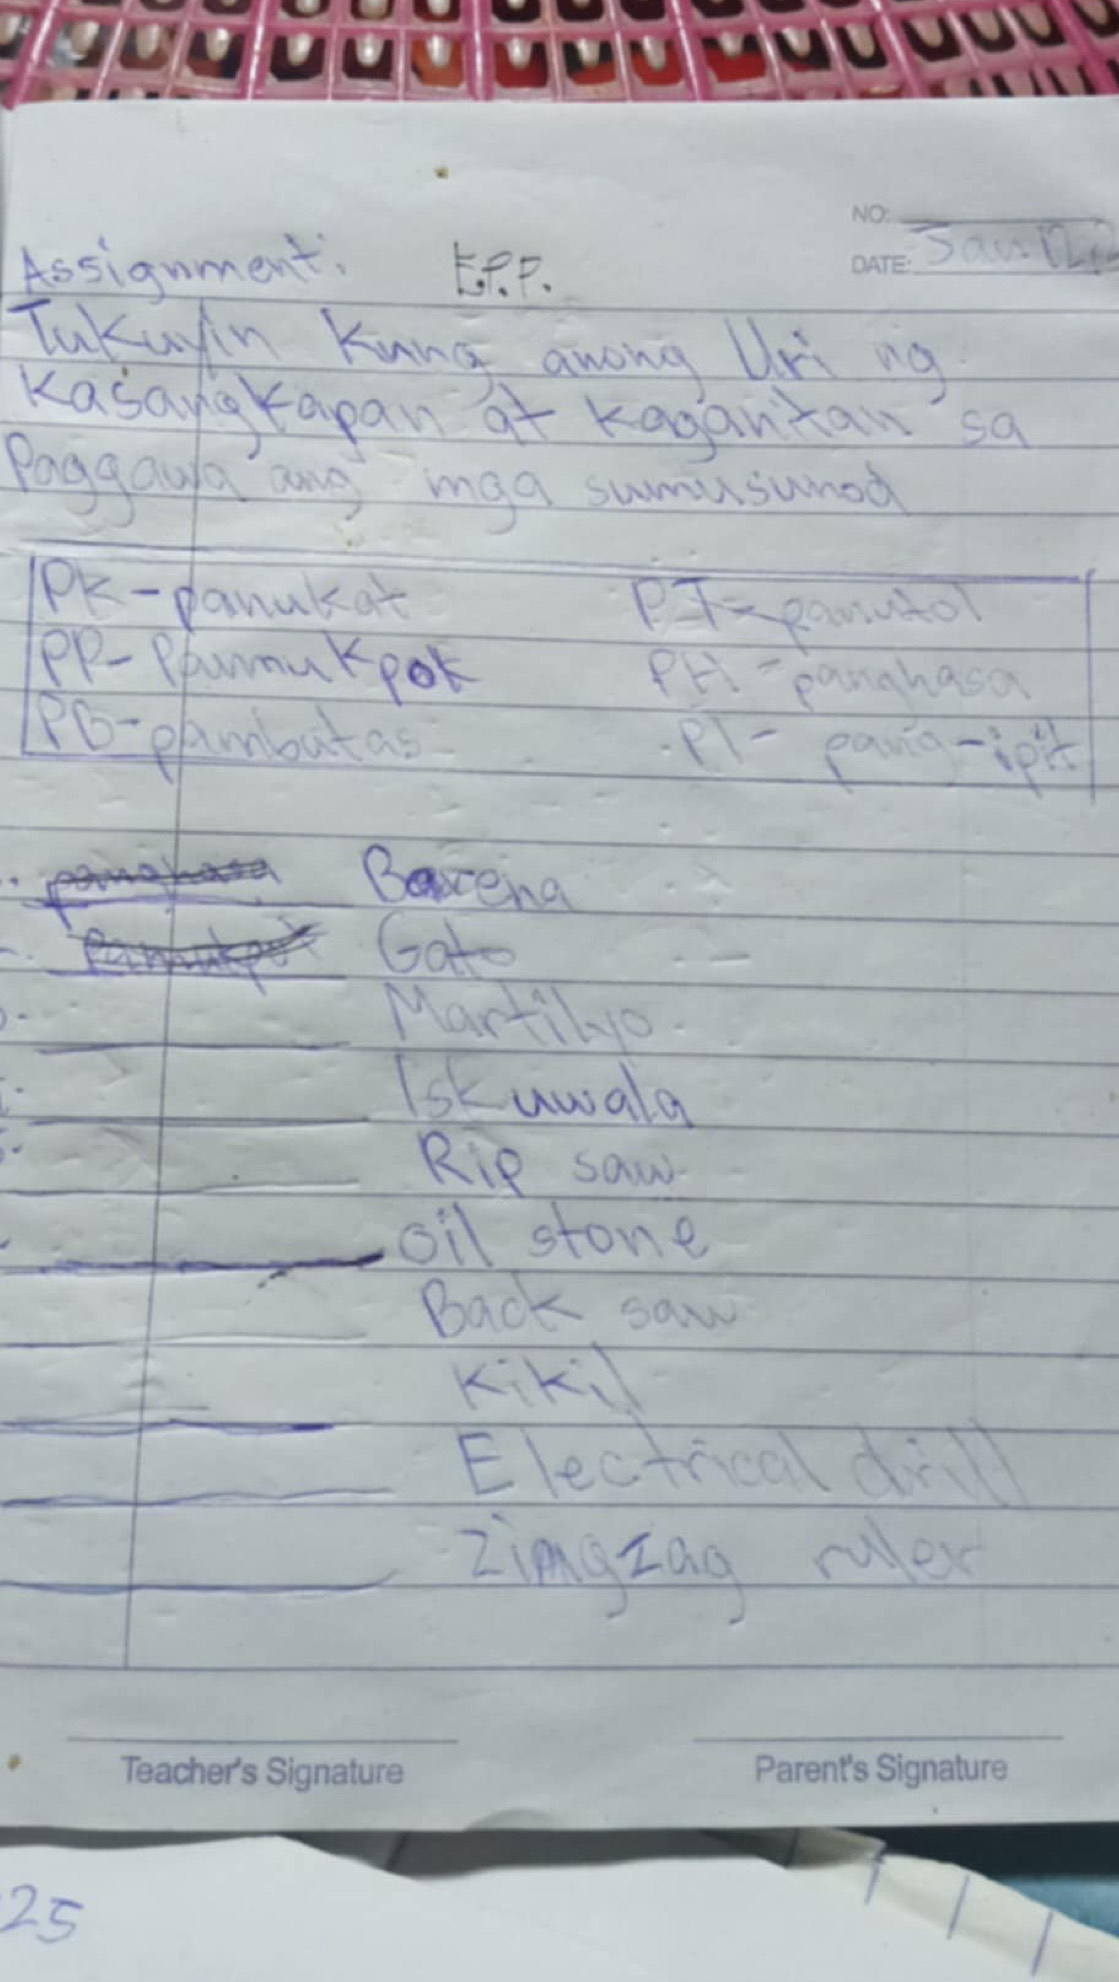 NO:
DATE: Jan. 12,
Assignment: E.P.P.
Tukuyin Kung anong Uri ng
Kasangkapan at kagamitan sa
Paggawa ang mga sumusunod
PK-panukat PT-panutol
PP-Pamukpok PH-panghasa
PB-pambutas PI-pang-ipit
panghasa Barena
Pamukpok Gato
Martilyo
Iskuwala
Rip saw
oil stone
Back saw
Kikil
Electrical drill
zimgzag ruler
Teacher's Signature Parent's Signature
25